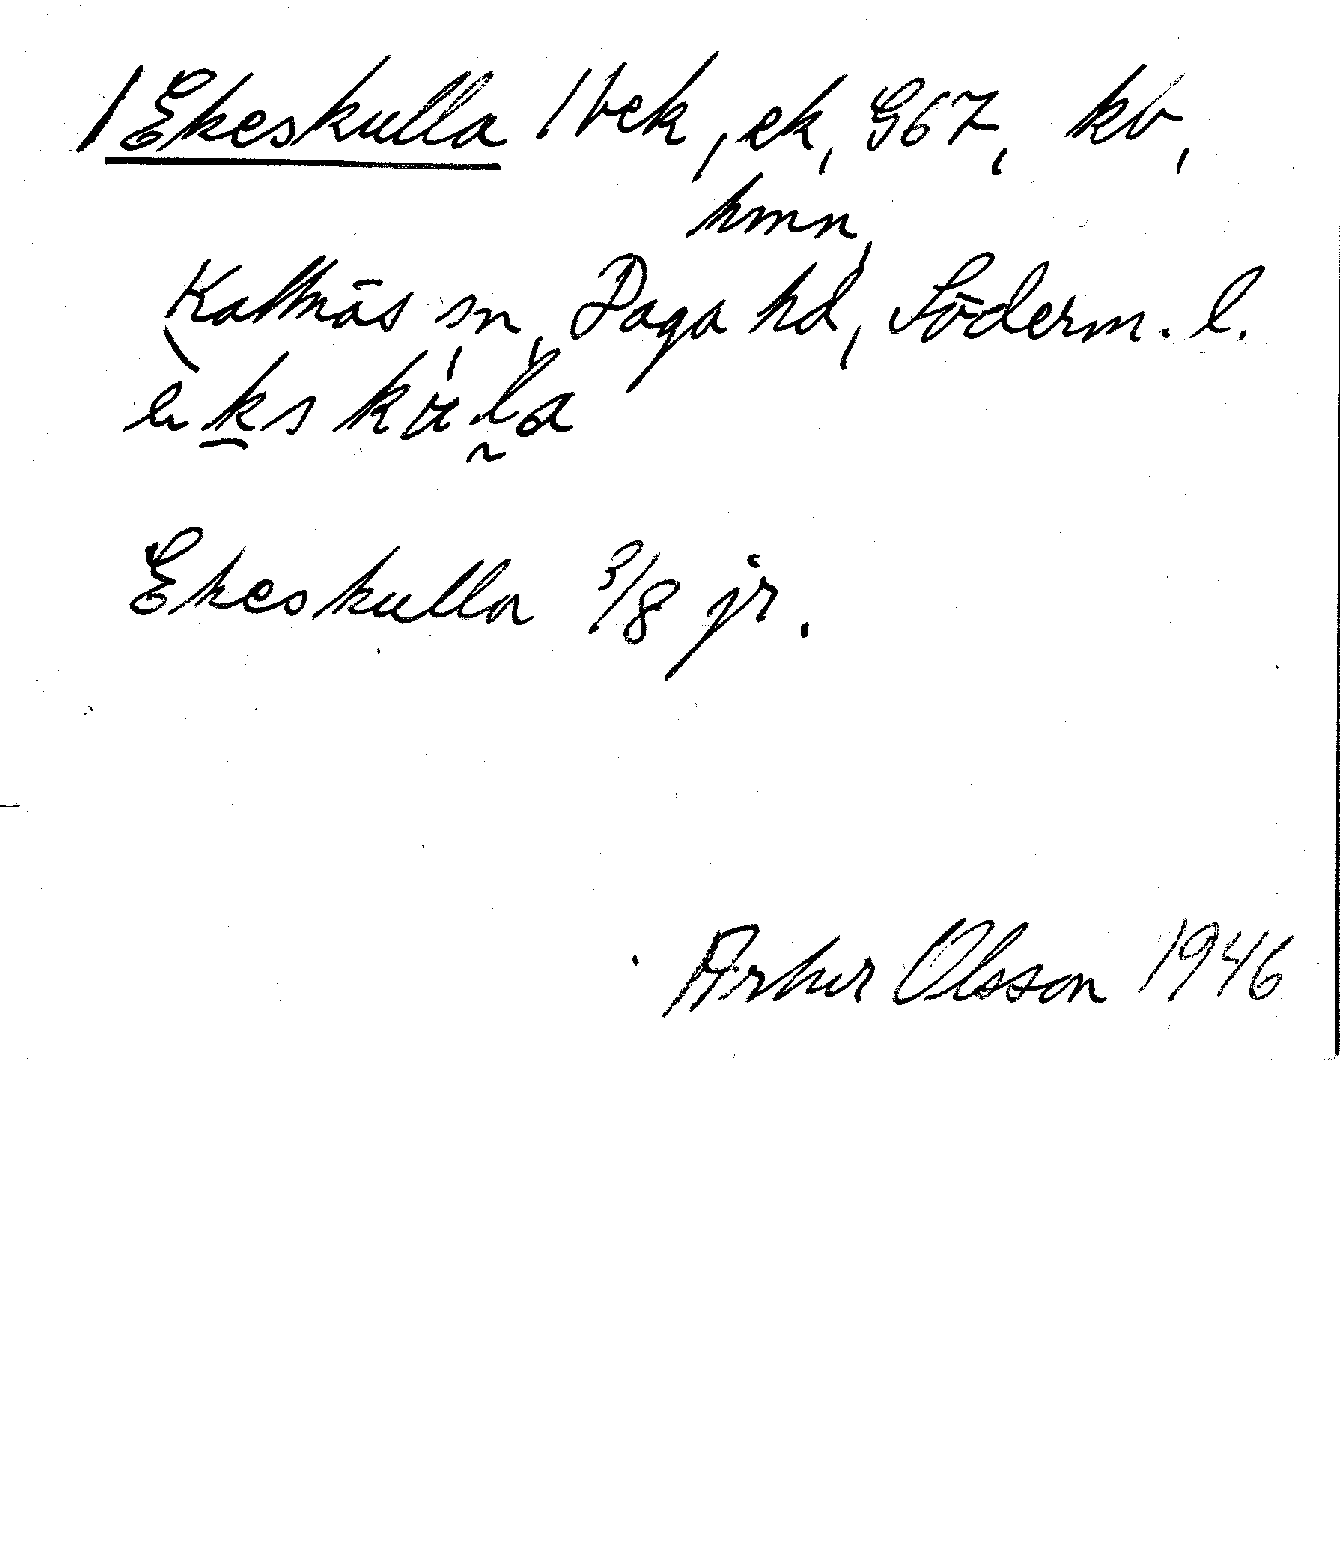 Ekeskulla /bek, ek, G67, kb,
hmn,
Kattnäs sn, Daga hd, Söderm. l.
Ekeskulla 3/8 jr.
Artur Olsson 1946